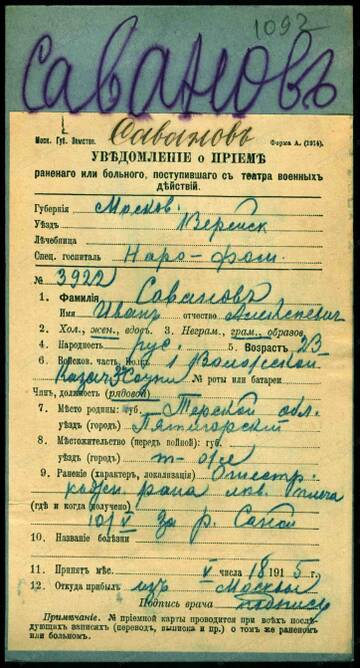 1092
Савановъ
Савановъ
Моск. Губ. Земство. Форма А. (1914).
УВѢДОМЛЕНІЕ о ПРІЕМѢ
раненаго или больного, поступившаго съ театра военныхъ
дѣйствій.
Губернія Москов.
Уѣздъ Верейск
Лѣчебница
Спец. госпиталь Наро-Фом.
№ 3922
1. Фамилія Савановъ
Имя Иванъ отчество Алексѣевич
2. Хол., жен., вдов. 3. Неграм., грам., образов.
4. Народность рус. 5. Возрастъ 23
6. Войсков. часть, полкъ 1
Казач. № роты или батареи
Чинъ, должность (рядовой)
7. Мѣсто родины: губ. Терской обл.
уѣздъ (городъ) Пятигорскій
8. Мѣстожительство (передъ войной): губ.
уѣздъ (городъ)
9. Раненіе (характеръ, локализація) Огнестр.
рана лѣв. плеча
(гдѣ и когда получено)
10/V За р. Саной
10. Названіе болѣзни
11. Принятъ мѣс. V числа 18 1915 г.
12. Откуда прибылъ изъ Москвы
Подпись врача подпись
Примѣчаніе. № пріемной карты проводится при всѣхъ послѣд-
ующихъ записяхъ (переводъ, выписка и пр.) о томъ же раненомъ
или больномъ.